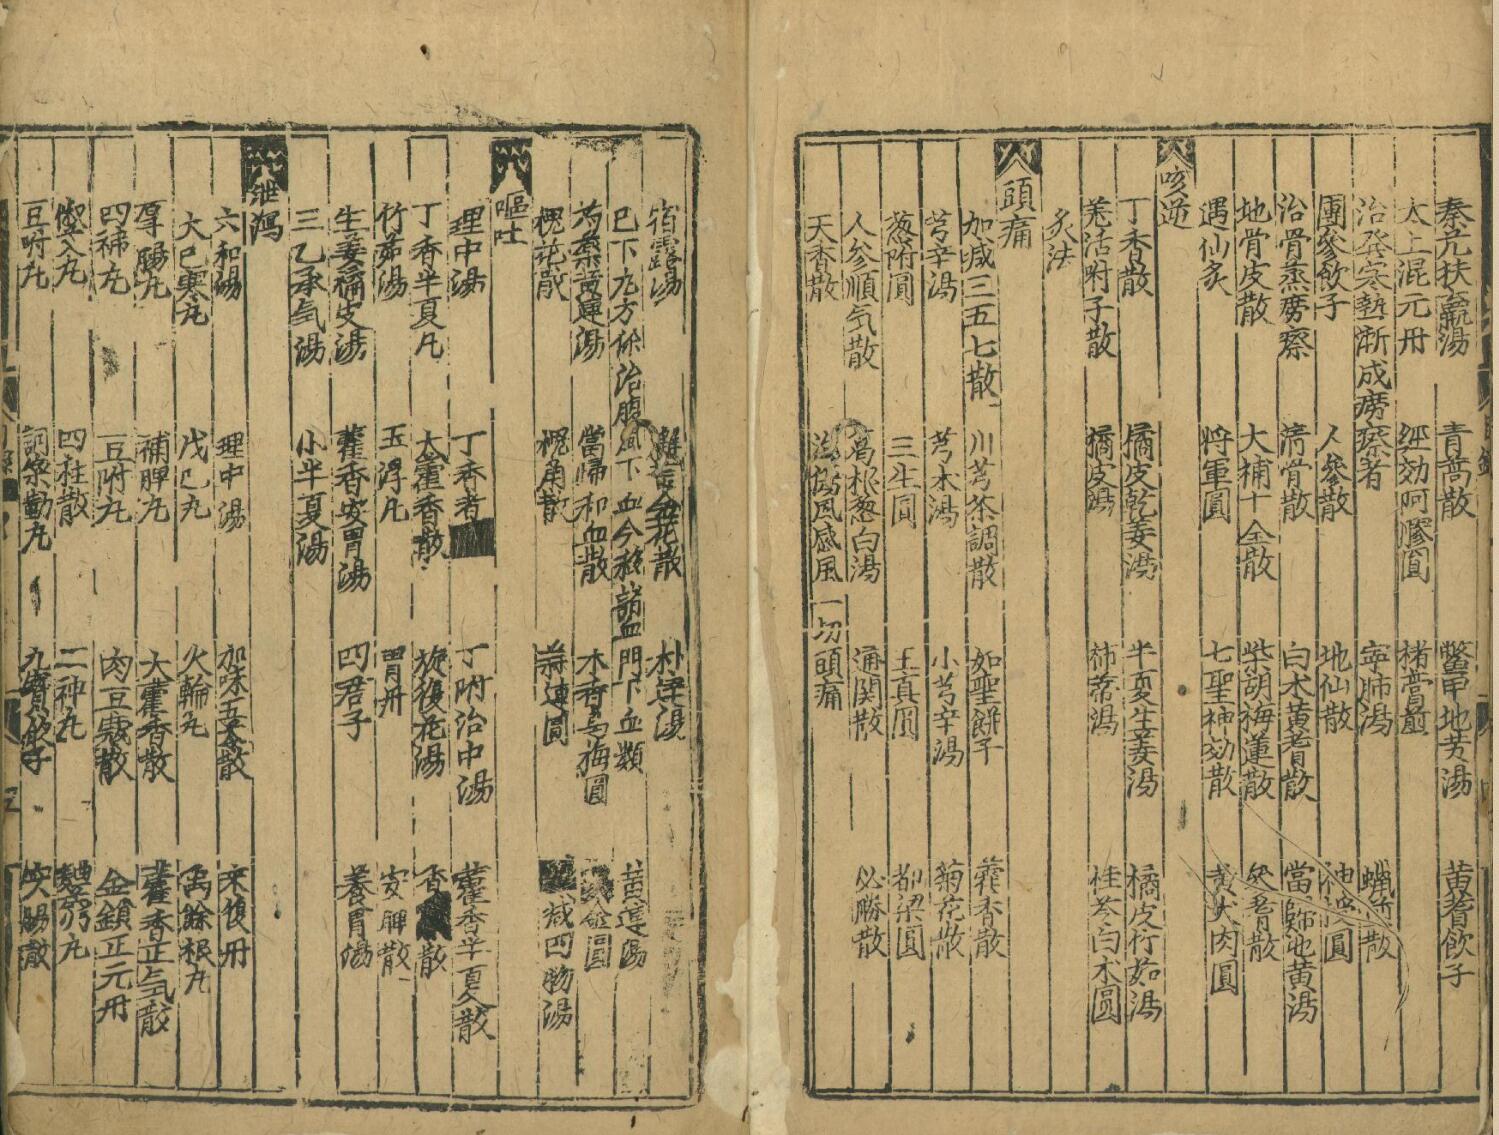 秦艽扶羸湯 青蒿散 鱉甲地黃湯 黃耆飲子
太上混元丹 經効阿膠圓 猪膏煎
治發寒熱漸成癆瘵者 寧肺湯 蠟煎散
團參飲子 人參散 地仙散 神授圓
治骨蒸癆瘵 清骨散 白术黃耆散 當歸地黃湯
地骨皮散 大補十全散 柴胡梅連散 癸膏散
遇仙炙 將軍圓 七聖神効散 黃犬肉圓
咳逆
丁香散 橘皮乾姜湯 半夏生姜湯 橘皮竹茹湯
羌活附子散 橘皮湯 柿蒂湯 桂苓白术圓
炙法
頭痛
加減三五七散 川芎茶調散 如聖餅子 藿香散
芎辛湯 芎术湯 小芎辛湯 菊花散
葱附圓 三生圓 玉真圓 都梁圓
人參順气散 葛根葱白湯 通関散 必勝散
天香散 治傷風感風一切頭痛
宿露湯 金花散 朴湯 黃連湯
已下九方係治腹下血今移臟血門下血類
芍藥黃連湯 當歸和血散 木香烏梅圓 圓
槐花散 槐角散 蒜連圓 减四物湯
嘔吐
理中湯 丁香煮 丁附治中湯 藿香半夏散
丁香半夏凡 大藿香散 旋復花湯 香散
竹茹湯 玉浮凡 胃丹 安脾散
生姜橘皮湯 藿香安胃湯 四君子 養胃湯
三乙承气湯 小半夏湯
泄瀉
六和湯 理中湯 加味五苓散 來復丹
大已寒丸 戊已丸 火輪丸 禹餘粮丸
厚腸丸 補脾丸 大藿香散 藿香正气散
四補丸 豆附丸 肉豆蔻散 金鎖正元丹
四柱散 二神丸 麯芎丸
豆附丸 訶梨勒丸 九寶飲子 腸散